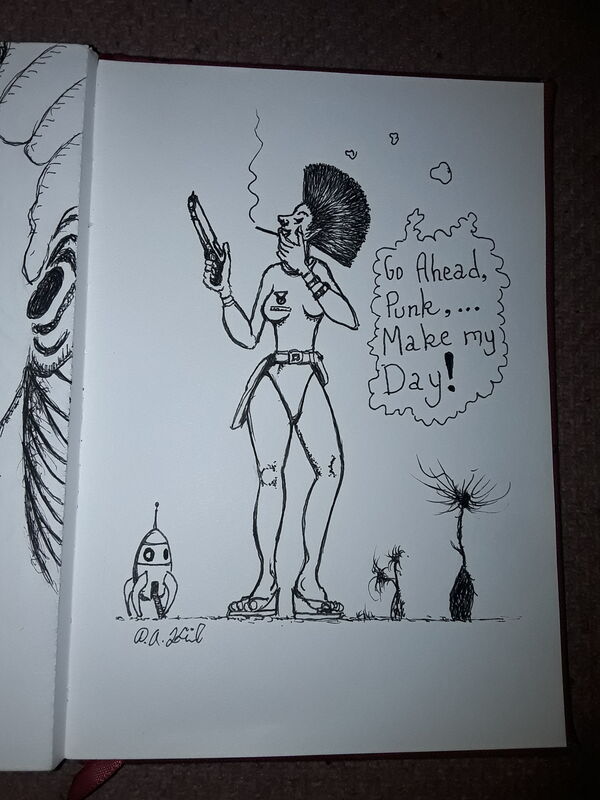 Go Ahead,
Punk,...
Make my
Day!